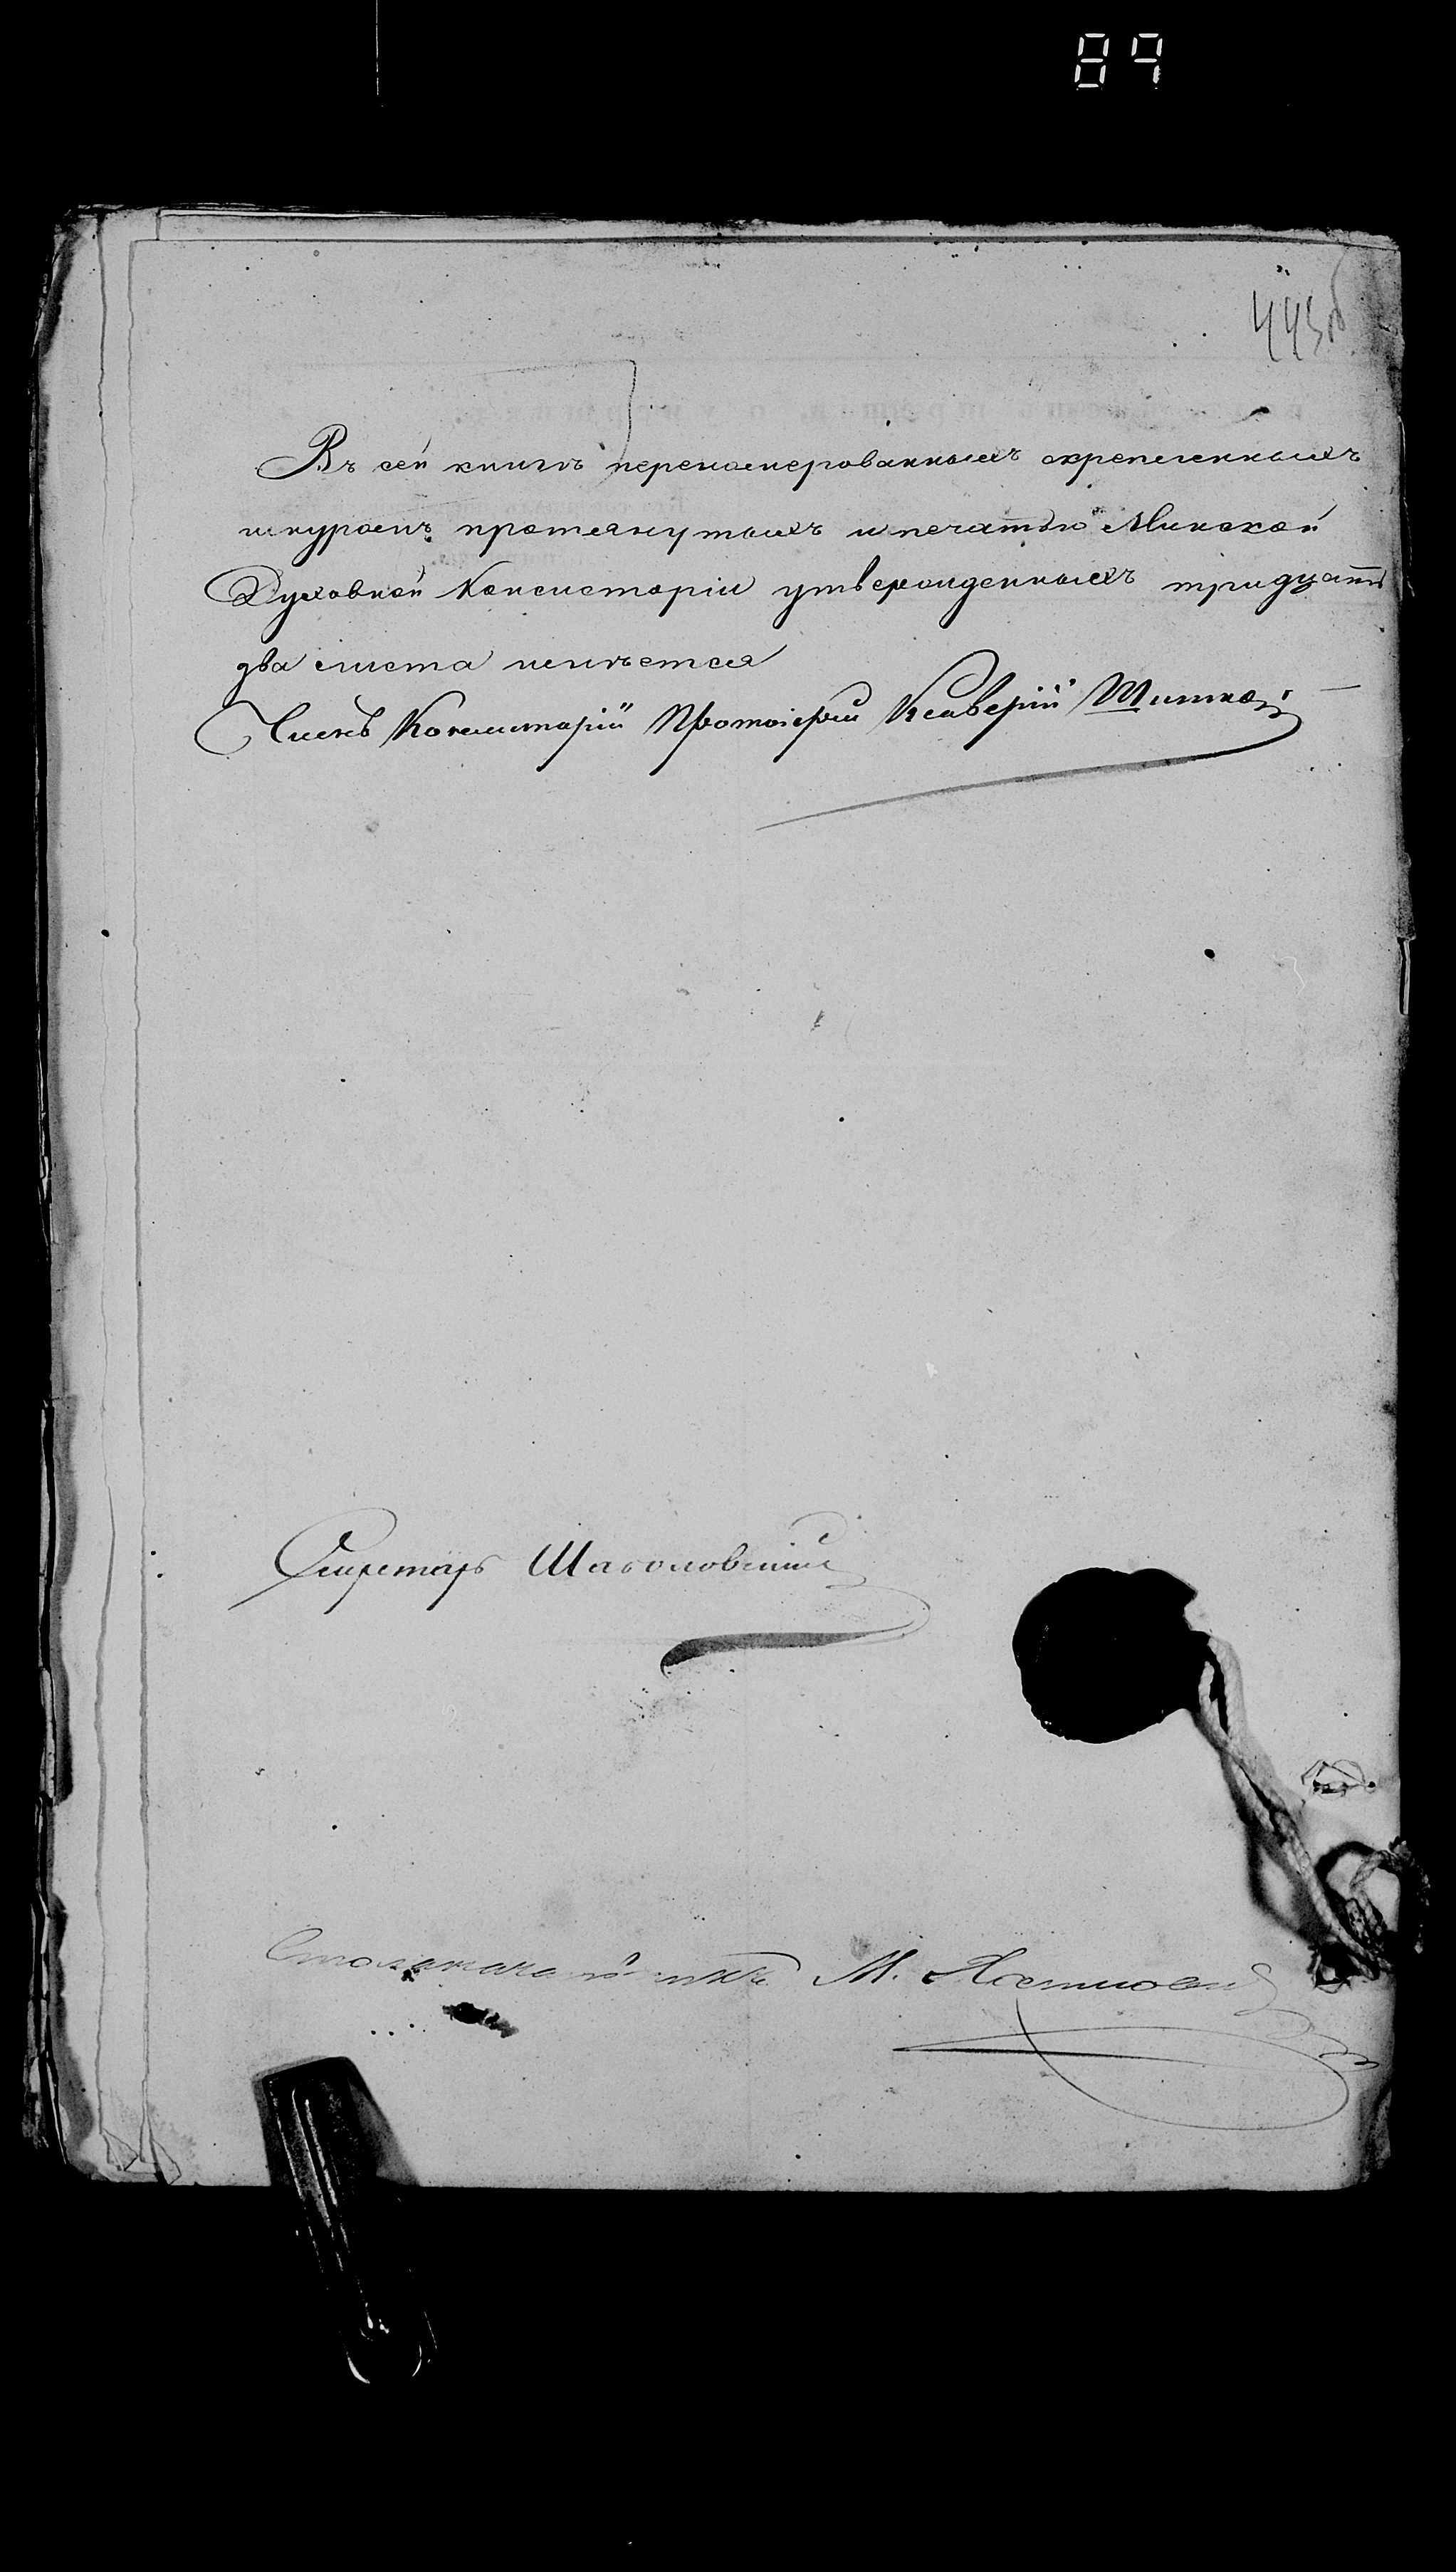 89
443об
Въ сей книгѣ перенамерованныхъ скрепленныхъ
шнуромъ протянутыхъ и печатью Минской
Духовной Консисторіи утвержденныхъ тридцать
два листа имѣется
Членъ Консисторіи Протоіерей Ксаверій
Секретарь
Столоначальникъ М.